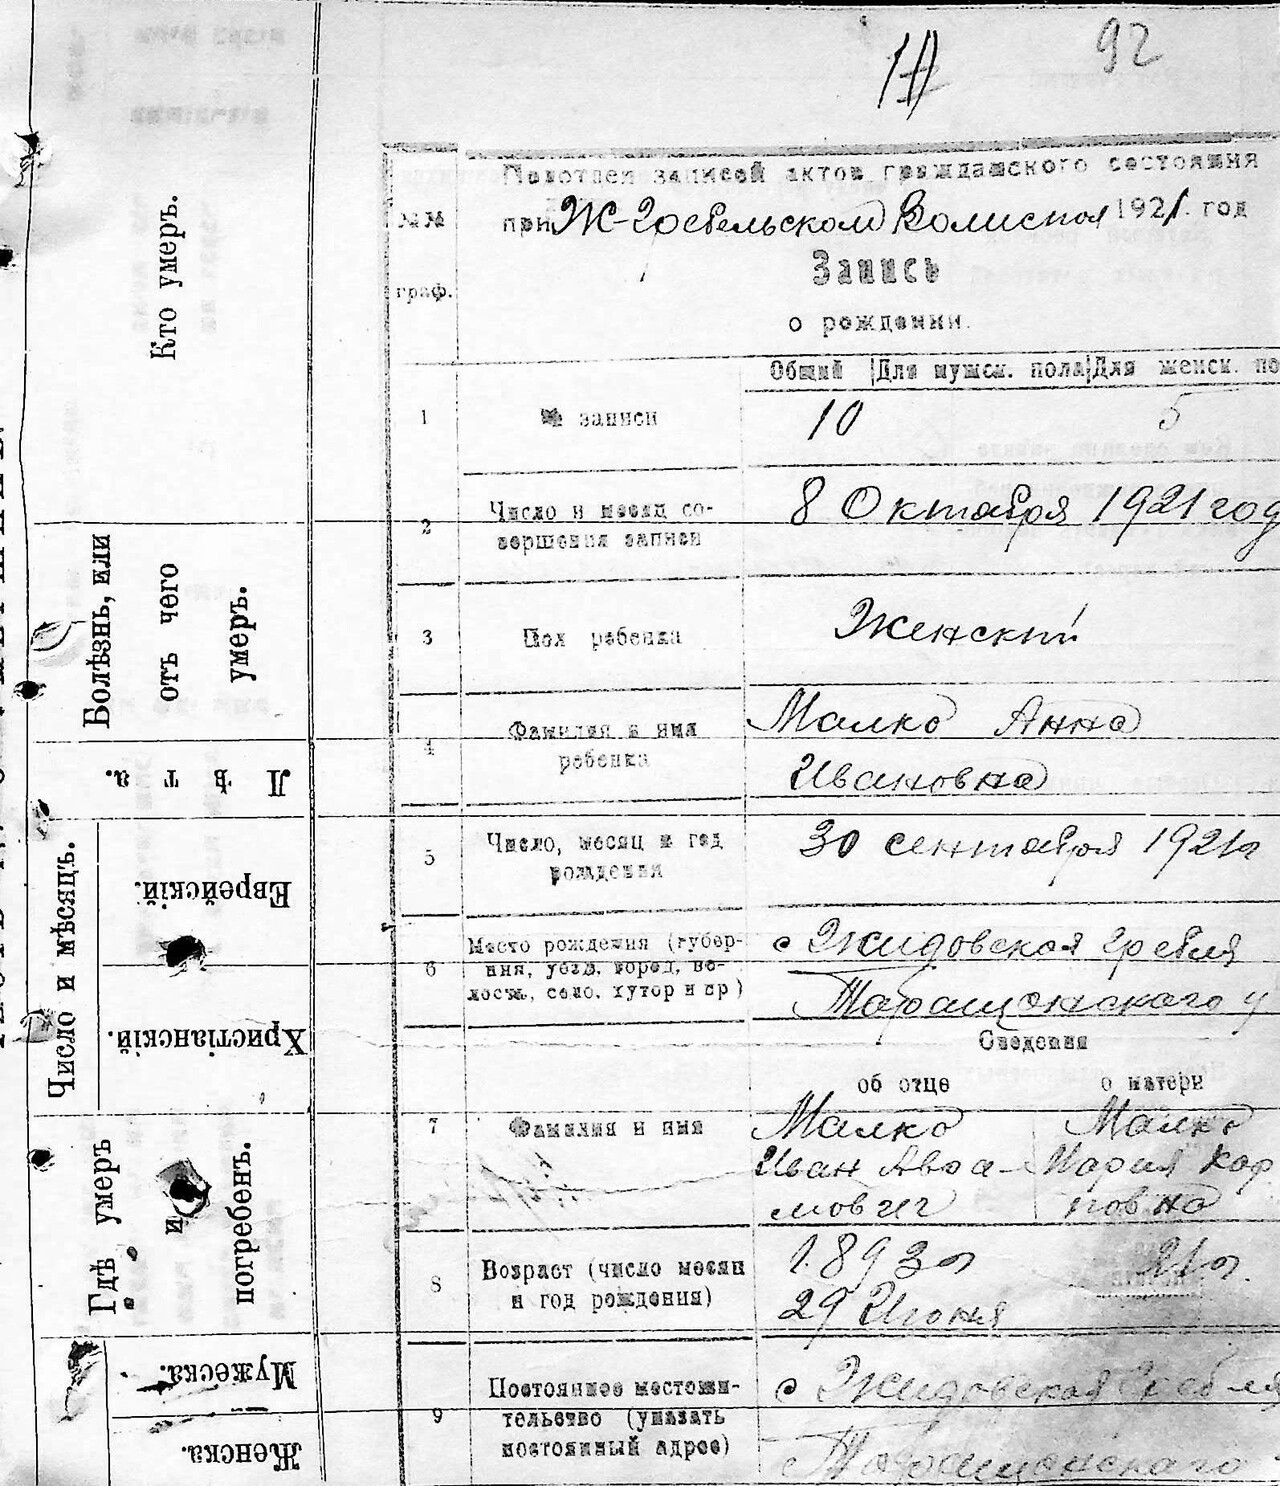 92
10
Подотдел записей актов гражданского состояния
при Ж-Гребельском Волиспол 1921. год
№№
граф.
Запись
о рождении.
Общий Для мужск. пола Для женск. по
1 № записи 10 5
2 Число и месяц со-
вершения записи
8 Октября 1921 год
3 Пол ребенка Женский
4 Фамилия и имя
ребенка
Малко Анна
Ивановна
5 Число, месяц и год
рождения
30 сентября 1921г
6 Место рождения (губер-
ния, уезд, город, во-
лость, село, хутор и пр)
с Жидовская Гребля
Таращанского у
Сведения
об отце о матери
7 Фамилия и имя
Малко
Иван Авра-
мович
Малко
Мария Кар
повна
8 Возраст (число месяц
и год рождения)
1893г
29 Июня
21г.
9 Постоянное местожи-
тельство (указать
постоянный адрес)
с Жидовская Гребля
Таращанского
Кто умеръ.
Болѣзнь, или
отъ чего
умеръ.
Лѣта.
Число и мѣсяцъ.
Еврейскій.
Христіанскій.
Гдѣ умеръ
и
погребенъ.
Мужеска.
Женска.